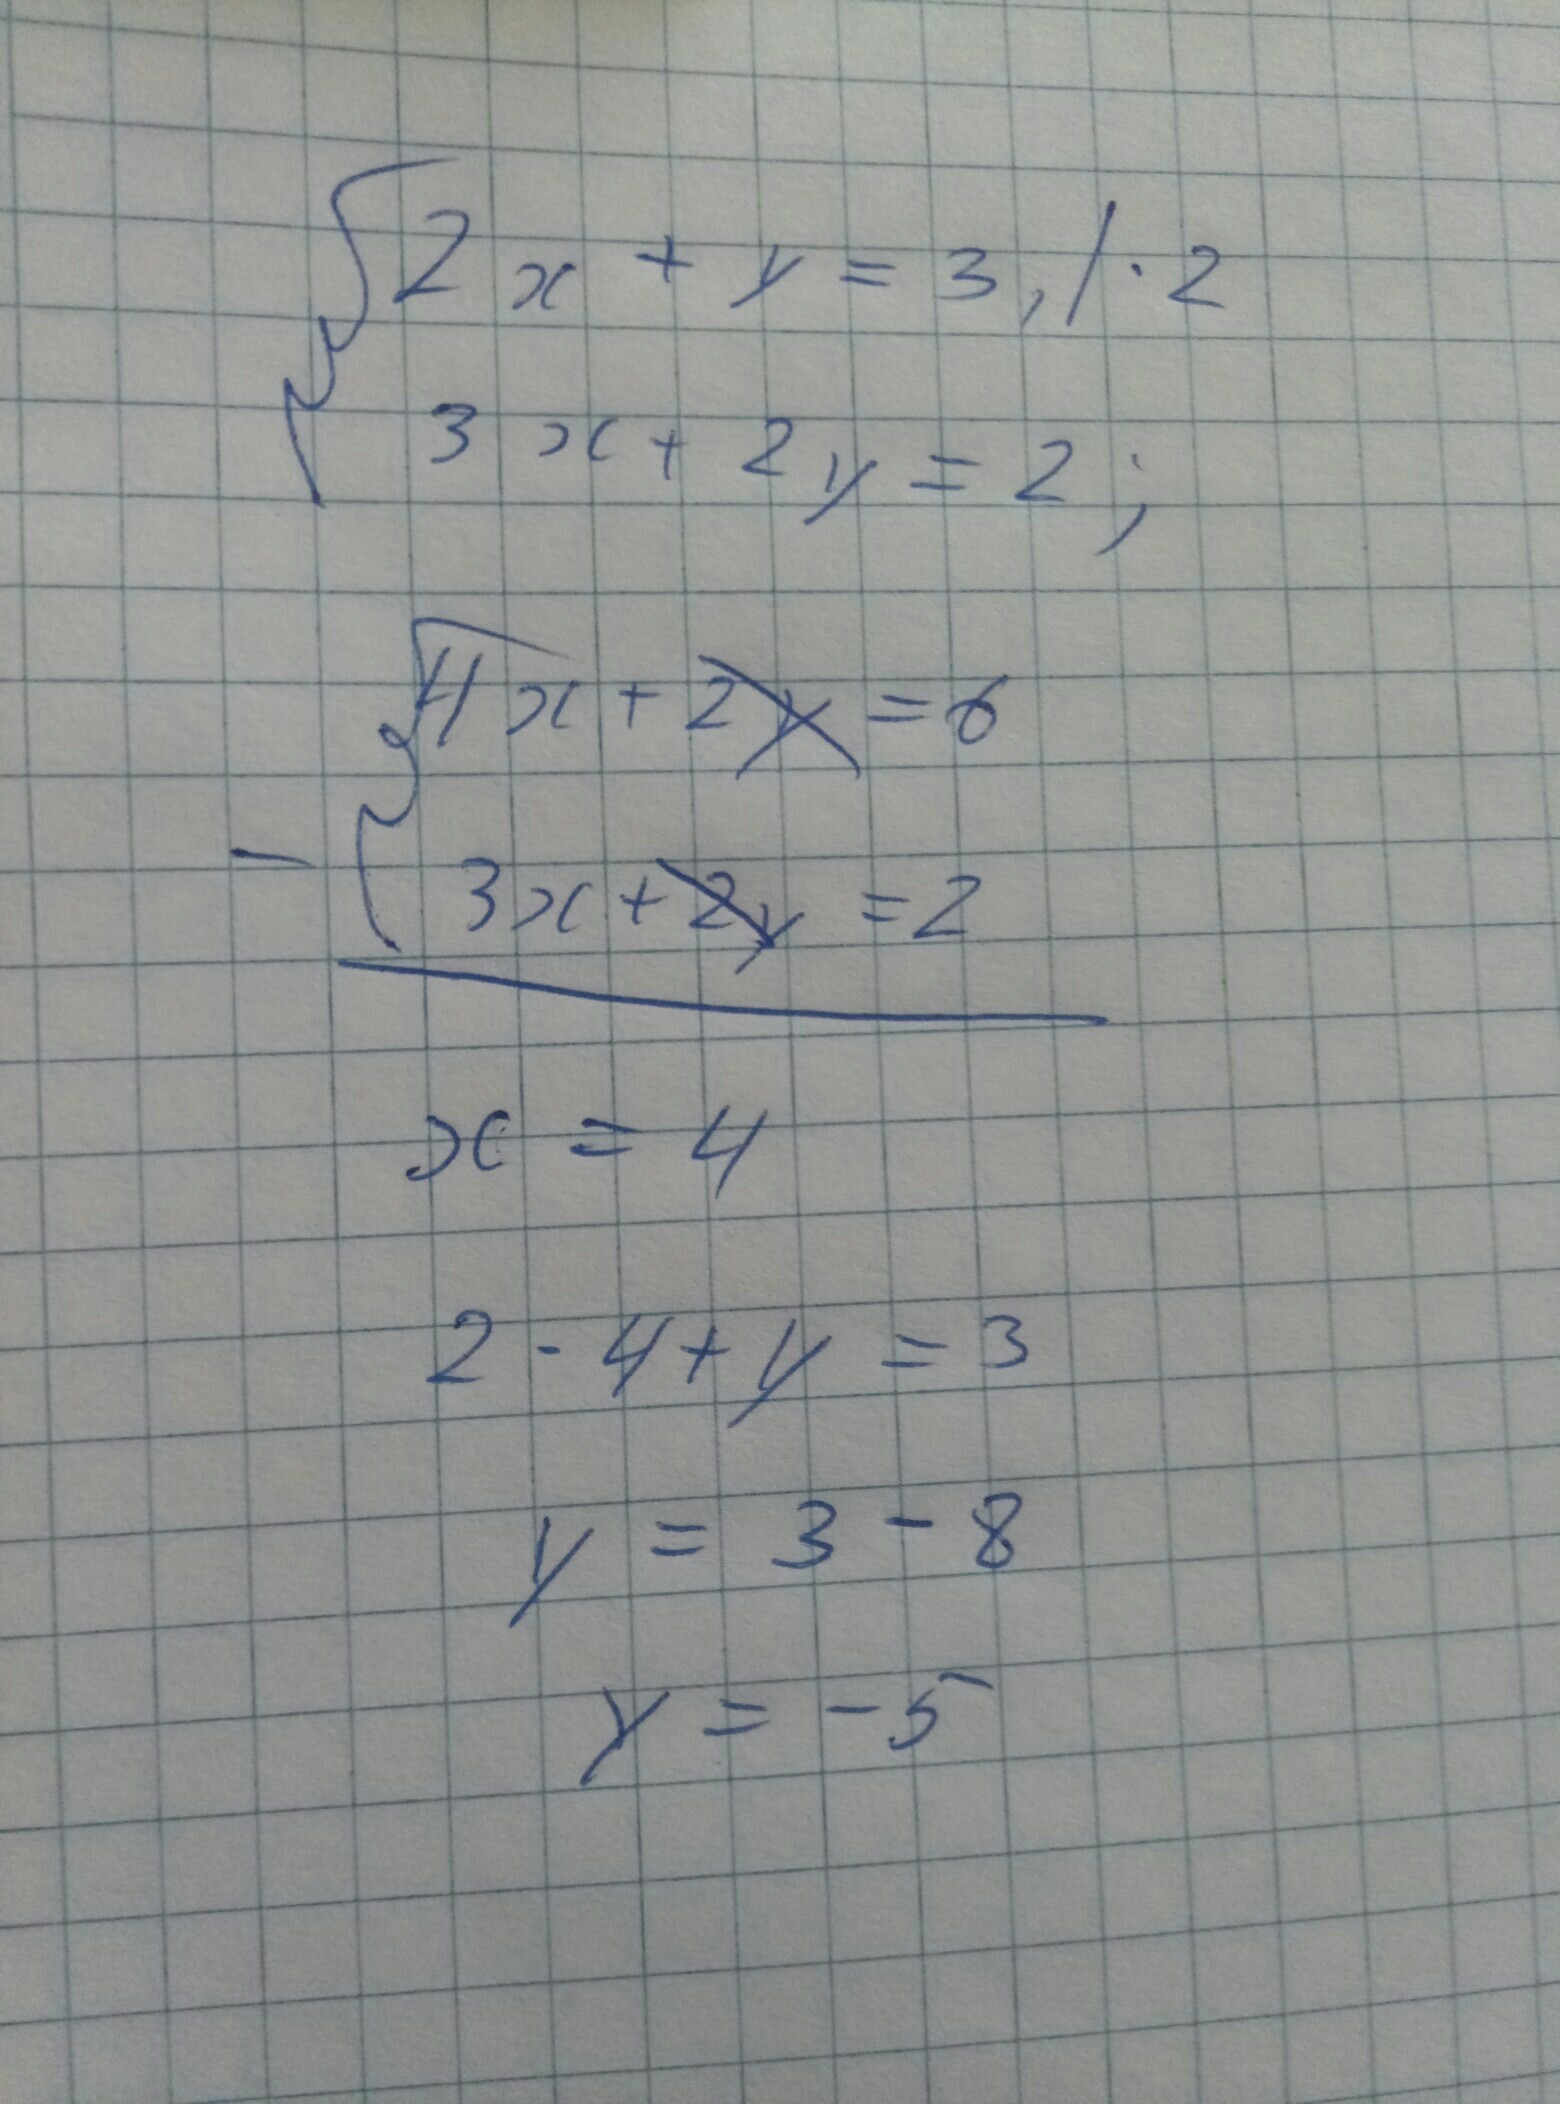 2x + y = 3, / · 2
3x + 2y = 2;
4x + 2y = 6
- 3x + 2y = 2
x = 4
2 · 4 + y = 3
y = 3 - 8
y = -5